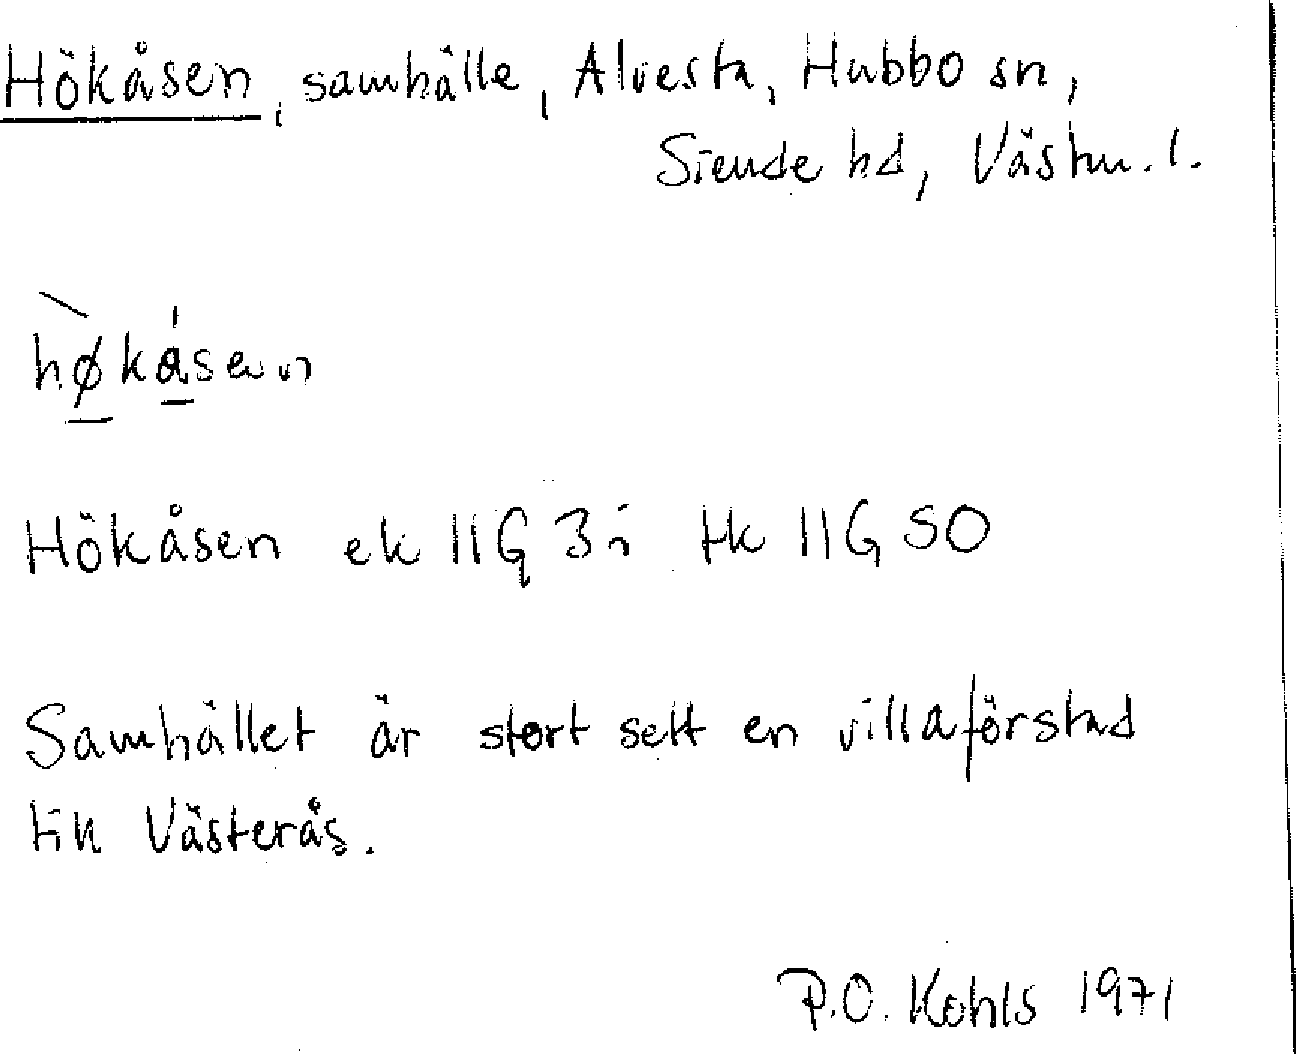 Hökåsen, samhälle, Alvesta, Hubbo sn,
Siende hd, Västm. l.
hø̀kåsen
Hökåsen ek 11G 3i tk 11G SO
Samhället är stort sett en villaförstad
till Västerås.
P.O. Kohls 1971